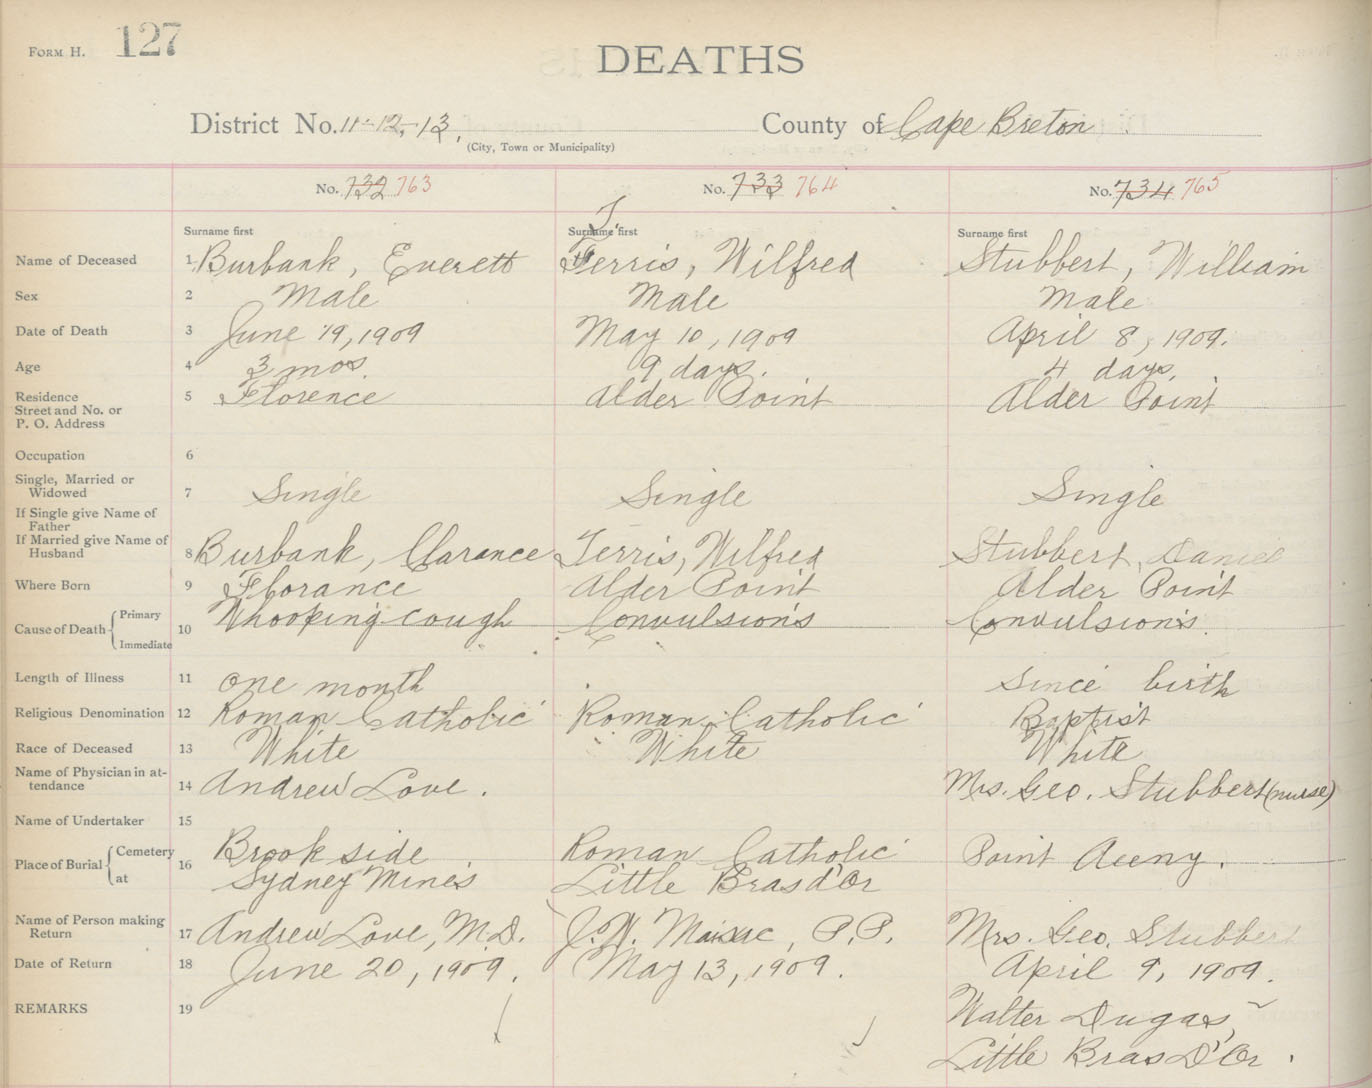 FORM H. 127
DEATHS
District No. 11-12,-13, County of Cape Breton
(City, Town or Municipality)
No. 732 763 No. 733 764 No. 734 765
T
Surname first Surname first Surname first
Name of Deceased 1 Burbank, Everett Ferris, Wilfred Stubbert, William
Sex 2 Male Male Male
Date of Death 3 June 19, 1909 May 10, 1909 April 8, 1909.
Age 4 3 mos. 9 days. 4 days.
Residence 5 Florence Alder Point Alder Point
Street and No. or
P. O. Address
Occupation 6
Single, Married or
Widowed 7 Single Single Single
If Single give Name of
Father
If Married give Name of
Husband 8 Burbank, Clarance Terris, Wilfred Stubbert, Daniel
Where Born 9 Florance Alder Point Alder Point
Cause of Death { Primary Immediate 10 Whooping cough Convulsions Convulsions.
Length of Illness 11 one month Since birth
Religious Denomination 12 Roman Catholic Roman Catholic Baptist
Race of Deceased 13 White White White
Name of Physician in at-
tendance 14 Andrew Love. Mrs. Geo. Stubbert (nurse)
Name of Undertaker 15
Place of Burial { Cemetery 16 Brookside Roman Catholic Point
at Sydney Mines Little Bras d'Or
Name of Person making
Return 17 Andrew Love, M.D. P.P. Mrs. Geo. Stubbert
Date of Return 18 June 20, 1909. May 13, 1909. April 9, 1909.
REMARKS 19 Walter Dugas,
Little Bras D'Or.